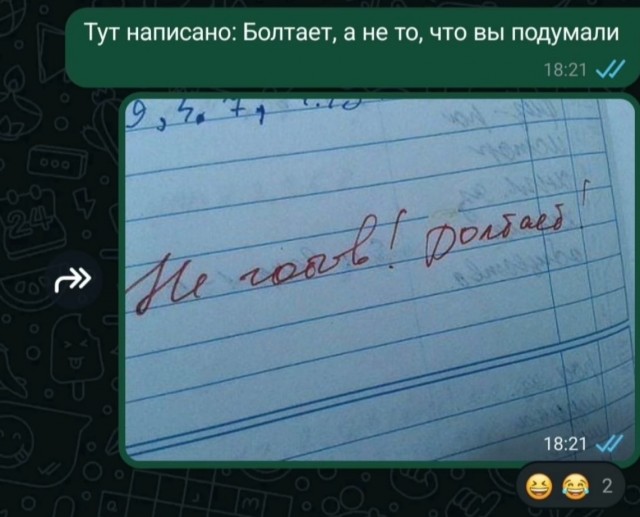 Тут написано: Болтает, а не то, что вы подумали
18:21
9, 4. 7,
Не готов! Болтает!
18:21
2